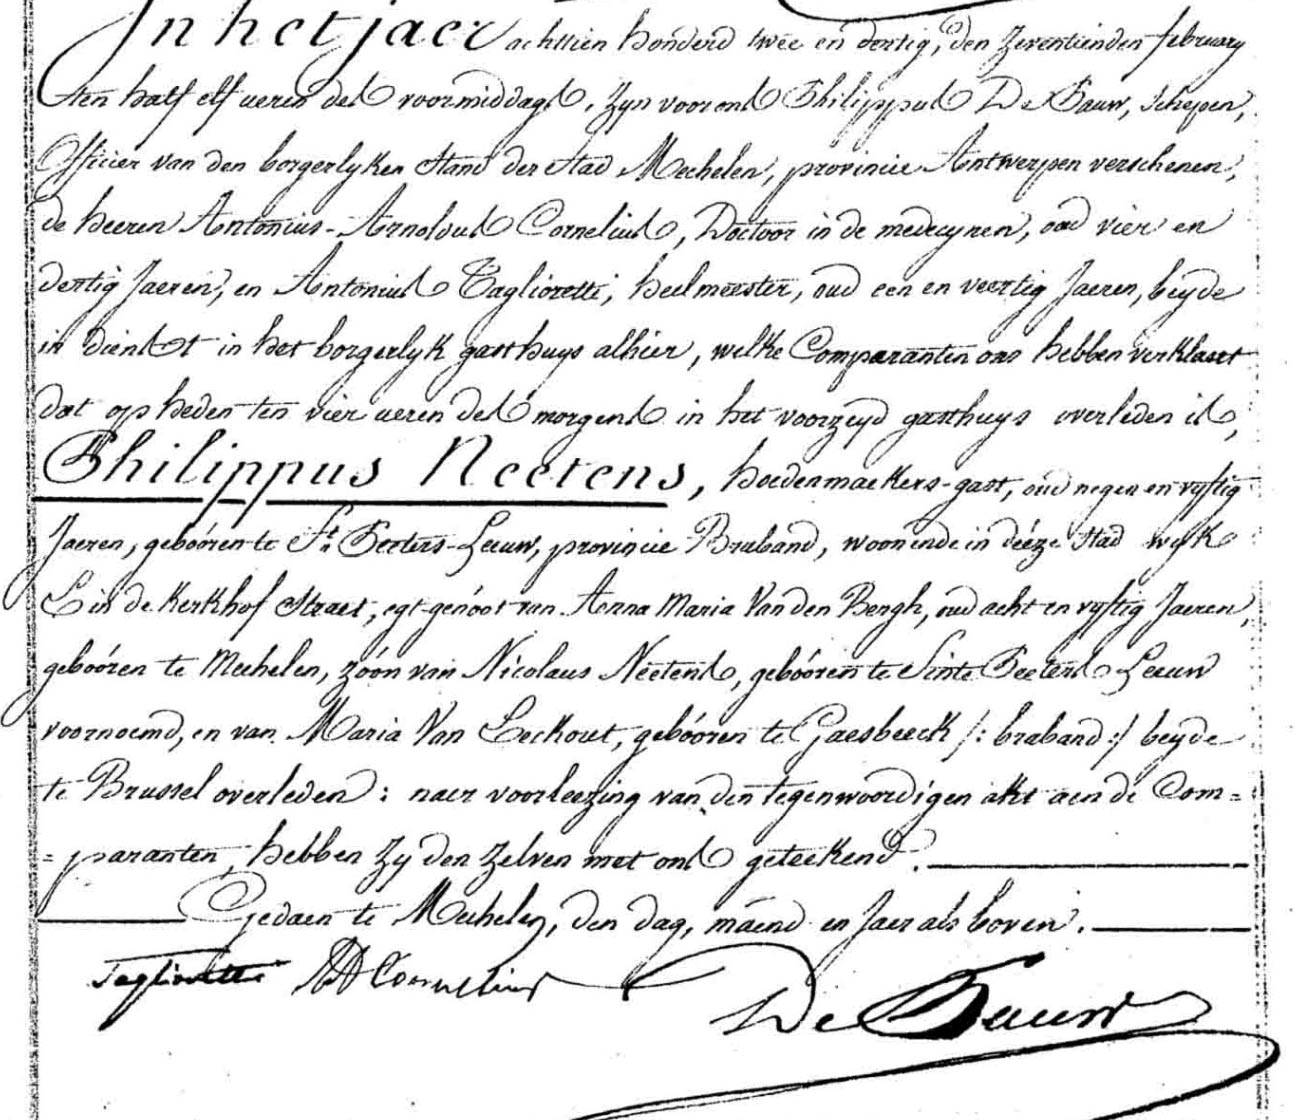 In het jaer achttien honderd twee en dertig, den zeventienden february
ten half elf ueren des voormiddags, zyn voor ons Philippus De Bauw, schepen,
Officier van den borgerlyken stand der stad Mechelen, provincie Antwerpen verschenen,
de heeren Antonius-Arnoldus Cornelius, Doctoor in de medecynen, oud vier en
dertig Jaeren, en Antonius Taglioretti, heelmeester, oud een en veertig Jaeren, beyde
in dienst in het borgerlyk gasthuys alhier, welke Comparanten ons hebben verklaert
dat op heden ten vier ueren des morgens in het voorzeyd gasthuys overleden is,
Philippus Neetens, hoedenmaekers-gast, oud negen en vyftig
Jaeren, gebóóren te St. Peeters-Leeuw, provincie Braband, woonende in déeze stad wyk
E in de Kerkhof Straet, egtgenóot van Anna Maria Van den Bergh, oud acht en vyftig Jaeren,
gebóóren te Mechelen, zóón van Nicolaus Neetens, gebóóren te Sinte Peeters Leeuw
voornoemd, en van Maria Van Eeckhout, gebóóren te Gaesbeeck /: braband :/ beyde
te Brussel overleden : naer voorleezing van den tegenwoordigen akt aen de Com=
=paranten, hebben zy den zelven met ons geteekend.
Gedaen te Mechelen, den dag, máend en Jaer als boven.
Tagliorettti AA Cornelius De Bauw